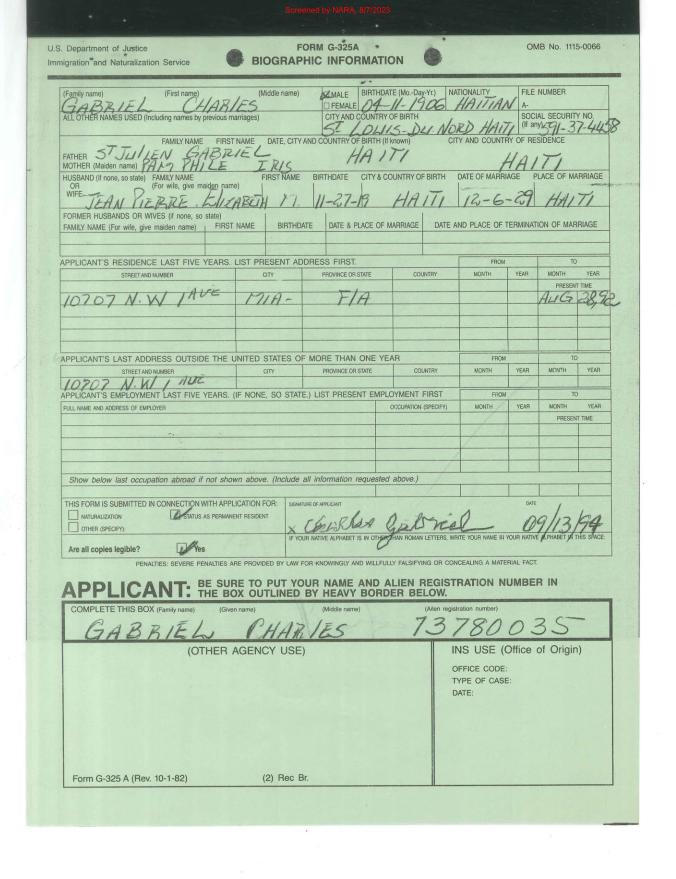 Screened by NARA, 8/7/2023
U.S. Department of Justice
Immigration and Naturalization Service
FORM G-325A
BIOGRAPHIC INFORMATION
OMB No. 1115-0066
(Family name) (First name) (Middle name) MALE FEMALE BIRTHDATE (Mo.-Day-Yr.) NATIONALITY FILE NUMBER
GABRIEL CHARLES 04-11-1906 HAITIAN A-
ALL OTHER NAMES USED (Including names by previous marriages) CITY AND COUNTRY OF BIRTH SOCIAL SECURITY NO. (If any)
ST LOUIS-DU NORD HAITI 591-37-4458
FAMILY NAME FIRST NAME DATE, CITY AND COUNTRY OF BIRTH (If known) CITY AND COUNTRY OF RESIDENCE
FATHER ST JULIEN GABRIEL HAITI
MOTHER (Maiden name) PAM PHILE IRIS HAITI
HUSBAND (If none, so state) FAMILY NAME FIRST NAME BIRTHDATE CITY & COUNTRY OF BIRTH DATE OF MARRIAGE PLACE OF MARRIAGE
OR (For wife, give maiden name)
WIFE JEAN PIERRE. ELIZABETH M. 11-27-19 HAITI 12-6-29 HAITI
FORMER HUSBANDS OR WIVES (if none, so state)
FAMILY NAME (For wife, give maiden name) FIRST NAME BIRTHDATE DATE & PLACE OF MARRIAGE DATE AND PLACE OF TERMINATION OF MARRIAGE
APPLICANT'S RESIDENCE LAST FIVE YEARS. LIST PRESENT ADDRESS FIRST. FROM TO
STREET AND NUMBER CITY PROVINCE OR STATE COUNTRY MONTH YEAR MONTH YEAR
PRESENT TIME
10707 N.W 1 AVE MIA- F/A AUG 28,92
APPLICANT'S LAST ADDRESS OUTSIDE THE UNITED STATES OF MORE THAN ONE YEAR FROM TO
STREET AND NUMBER CITY PROVINCE OR STATE COUNTRY MONTH YEAR MONTH YEAR
10707 N.W 1 AVE
APPLICANT'S EMPLOYMENT LAST FIVE YEARS. (IF NONE, SO STATE.) LIST PRESENT EMPLOYMENT FIRST FROM TO
FULL NAME AND ADDRESS OF EMPLOYER OCCUPATION (SPECIFY) MONTH YEAR MONTH YEAR
PRESENT TIME
Show below last occupation abroad if not shown above. (Include all information requested above.)
THIS FORM IS SUBMITTED IN CONNECTION WITH APPLICATION FOR: SIGNATURE OF APPLICANT DATE
NATURALIZATION STATUS AS PERMANENT RESIDENT
OTHER (SPECIFY):
X Charles Gabriel 09/13/94
IF YOUR NATIVE ALPHABET IS IN OTHER THAN ROMAN LETTERS, WRITE YOUR NAME IN YOUR NATIVE ALPHABET IN THIS SPACE:
Are all copies legible? Yes
PENALTIES: SEVERE PENALTIES ARE PROVIDED BY LAW FOR KNOWINGLY AND WILLFULLY FALSIFYING OR CONCEALING A MATERIAL FACT.
APPLICANT: BE SURE TO PUT YOUR NAME AND ALIEN REGISTRATION NUMBER IN
THE BOX OUTLINED BY HEAVY BORDER BELOW.
COMPLETE THIS BOX (Family name) (Given name) (Middle name) (Alien registration number)
GABRIEL CHARLES 73780035
(OTHER AGENCY USE)
INS USE (Office of Origin)
OFFICE CODE:
TYPE OF CASE:
DATE:
Form G-325 A (Rev. 10-1-82) (2) Rec Br.